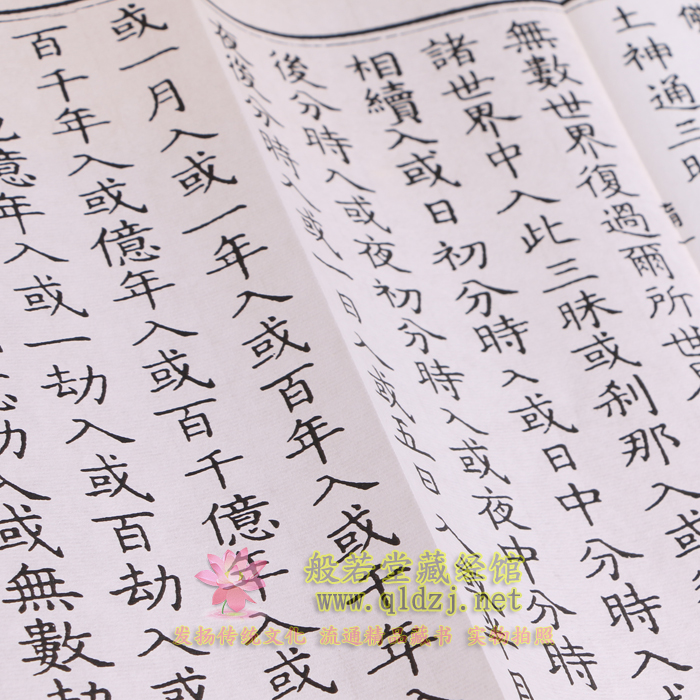 土神通三昧
無數世界復過爾所世
諸世界中入此三昧或刹那入或
相續入或日初分時入或日中分時
後分時入或夜初分時入或夜中分時
夜後分時入或一日入或五日入
半月
或一月入或一年入或百年入或千年
百千年入或億年入或百千億年入或
億年入或一劫入或百劫入或
劫入或無數劫
般若堂藏经馆
www.qldzj.net
发扬传统文化 流通精品藏书 实物拍照